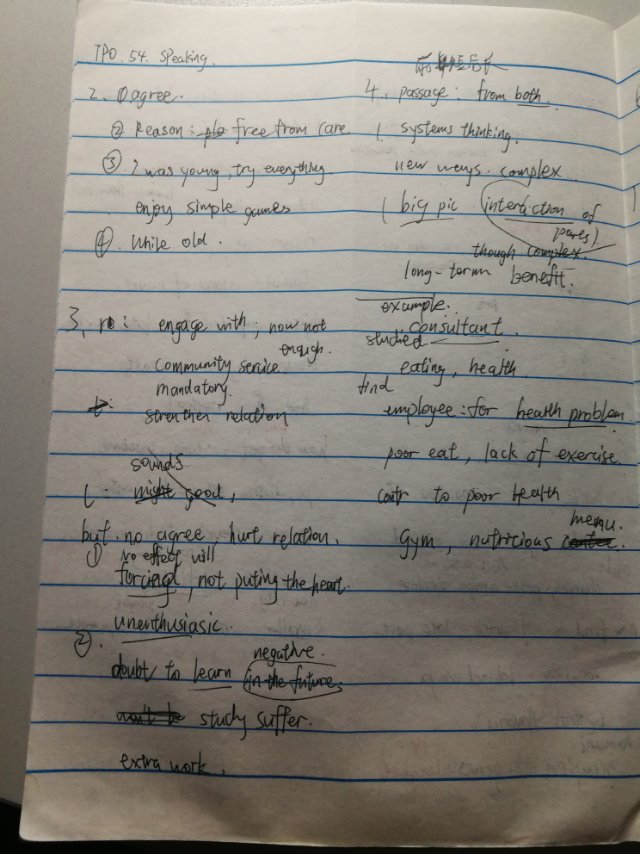 TPO. 54. Speaking.
2. Dagree.
② Reason: free from care.
③ I was young, try everything
enjoy simple games
④. While old.
3, r: engage with, now not
enough.
community service
mandatory.
strenther relation
sounds
L: might good,
but. no agree hurt relation.
① no effets will
forcing, not puting the heart.
unenthusiasic.
②.
negative.
doubt to learn in the future.
study suffer.
extra work.
4, passage: from both.
( systems thinking.
new ways. complex
( big pic (interaction of
pares)
though complex.
long-term benefit.
example.
consultant.
studied
eating, health
find
employee: for health problem
poor eat, lack of exercise.
contr to poor health
menu.
Gym, nutricious